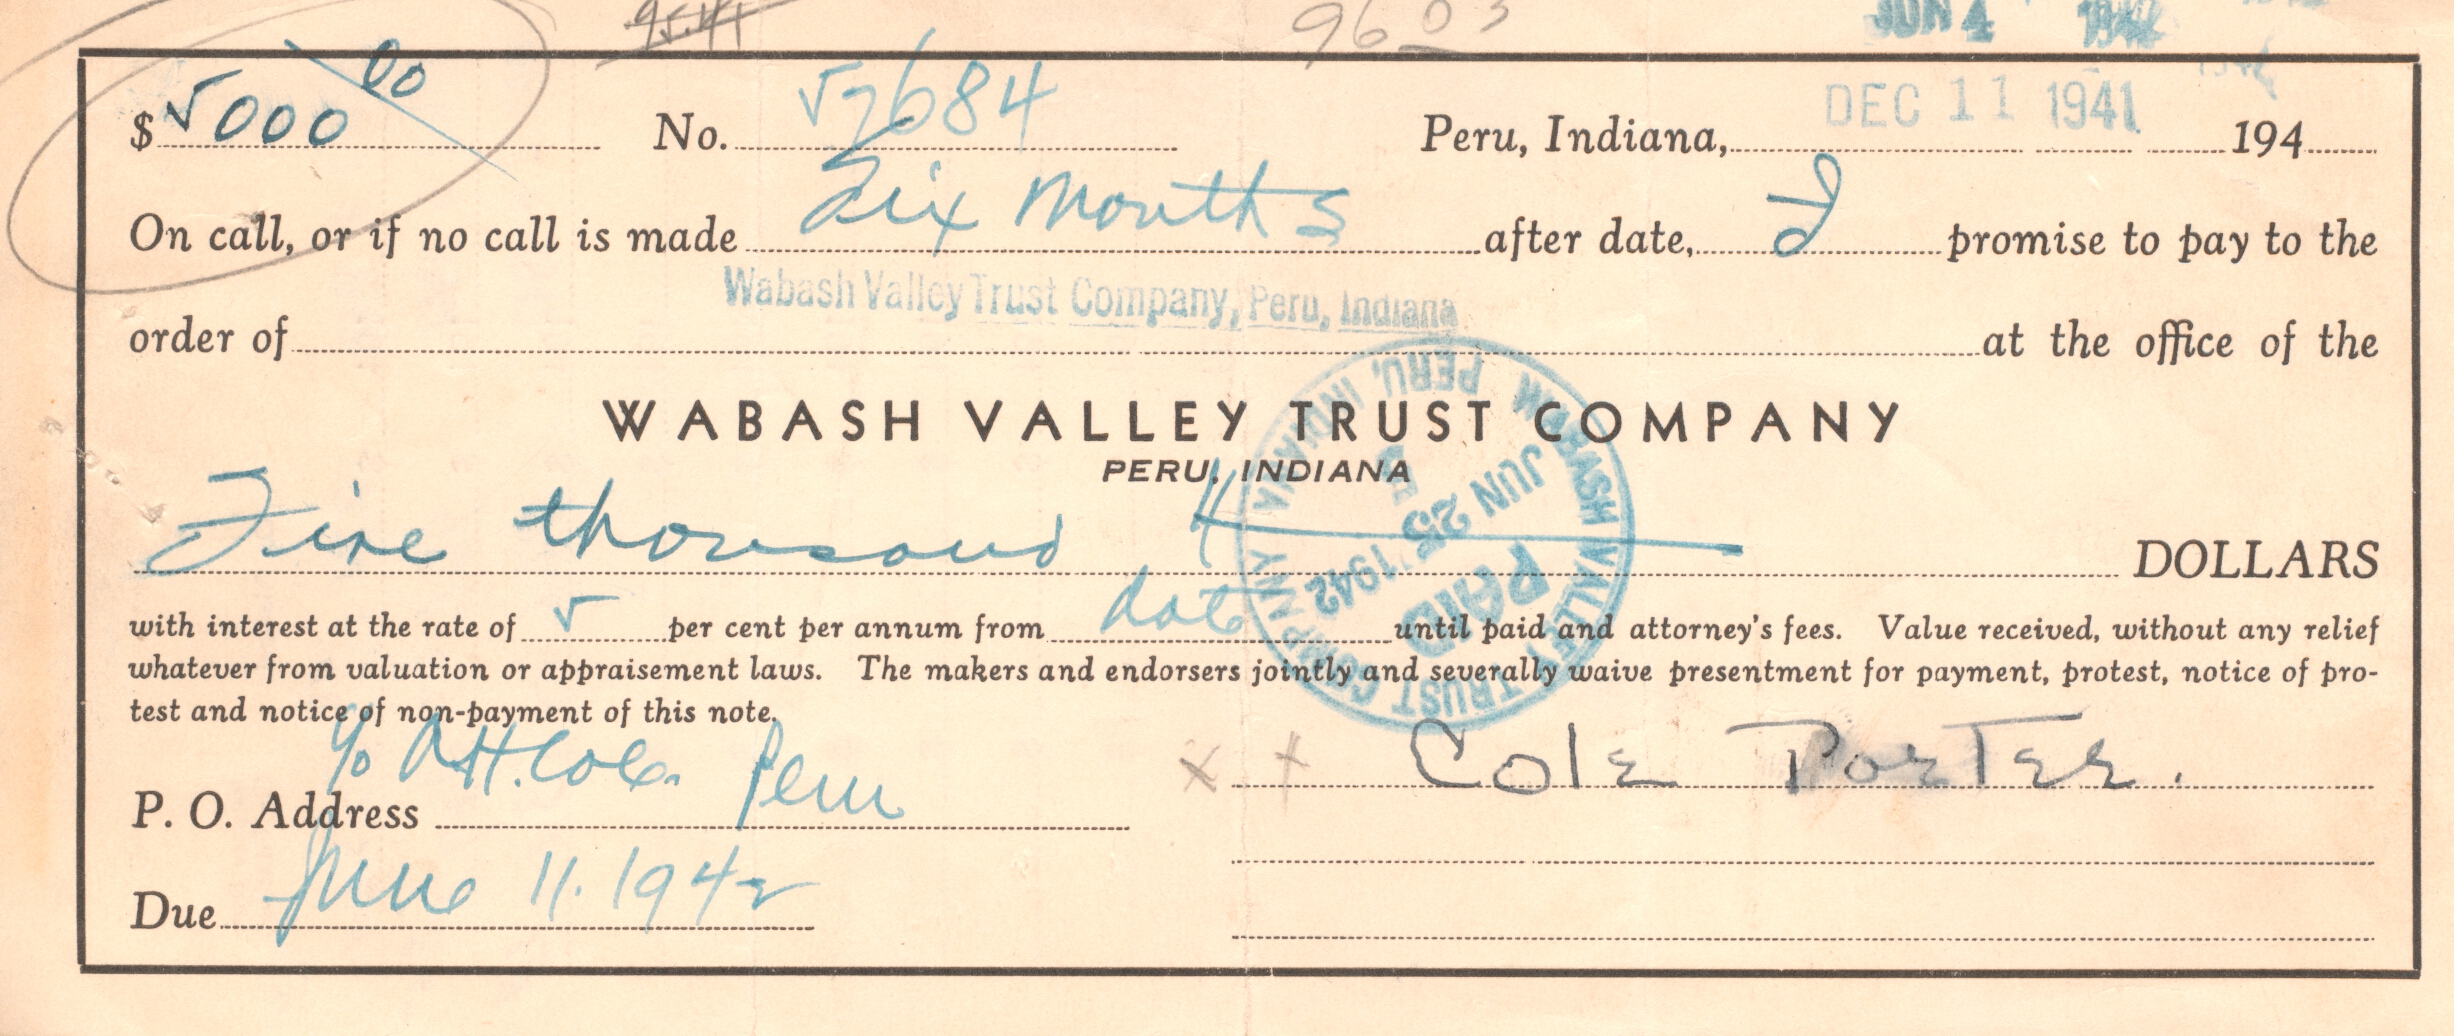 95.41
9603
JUN 4 1942
$ 5000 00 No. 57684 Peru, Indiana, DEC 11 1941 194
On call, or if no call is made Six Months after date, I promise to pay to the
Wabash Valley Trust Company, Peru, Indiana
order of at the office of the
WABASH VALLEY TRUST COMPANY
PERU, INDIANA
WABASH VALLEY TRUST COMPANY PERU, INDIANA
PAID
JUN 25 1942
Five thousand DOLLARS
with interest at the rate of 5 per cent per annum from date until paid and attorney's fees. Value received, without any relief
whatever from valuation or appraisement laws. The makers and endorsers jointly and severally waive presentment for payment, protest, notice of pro-
test and notice of non-payment of this note.
x x Cole Porter.
P. O. Address c/o A.H. Cole. Peru
Due June 11. 1942